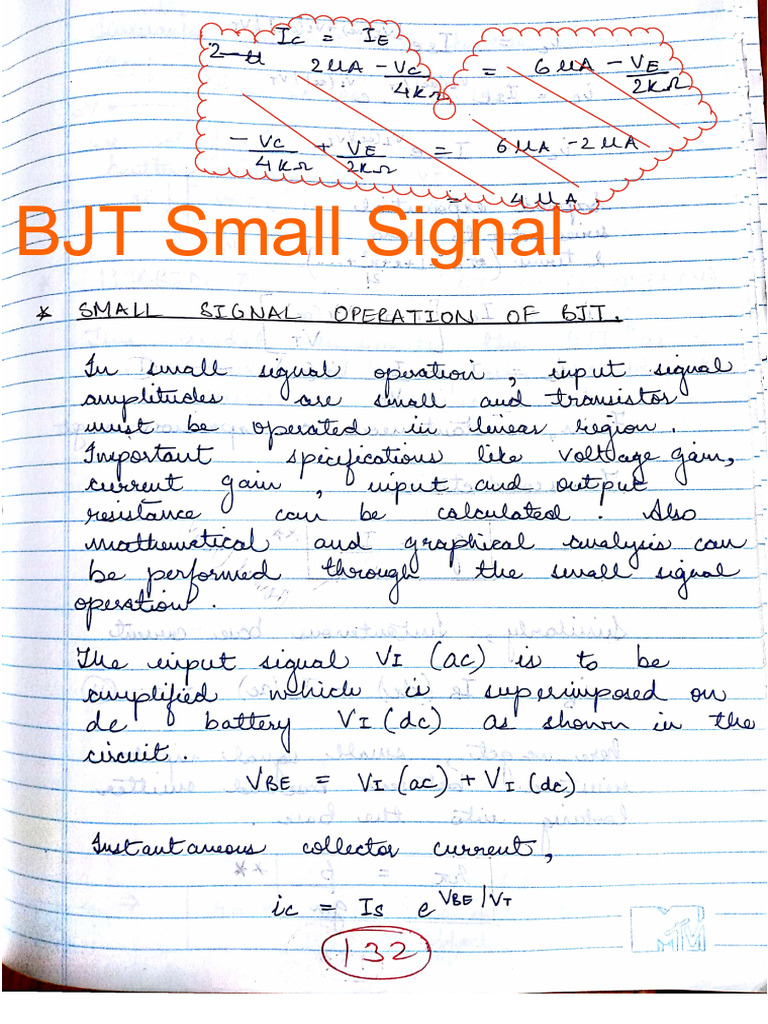 Ic = IE
2 µA - Vc/4kΩ = 6 µA - VE/2kΩ
-Vc/4kΩ + VE/2kΩ = 6 µA - 2 µA
= 4 µA
BJT Small Signal
* SMALL SIGNAL OPERATION OF BJT.
In small signal operation, input signal
amplitudes are small and transistor
must be operated in linear region.
Important specifications like voltage gain,
current gain, input and output
resistance can be calculated. Also
mathematical and graphical analysis can
be performed through the small signal
operation.
The input signal VI (ac) is to be
amplified which is superimposed on
dc battery VI (dc) as shown in the
circuit.
VBE = VI (ac) + VI (dc)
Instantaneous collector current,
ic = Is e^VBE/VT
132
MTV